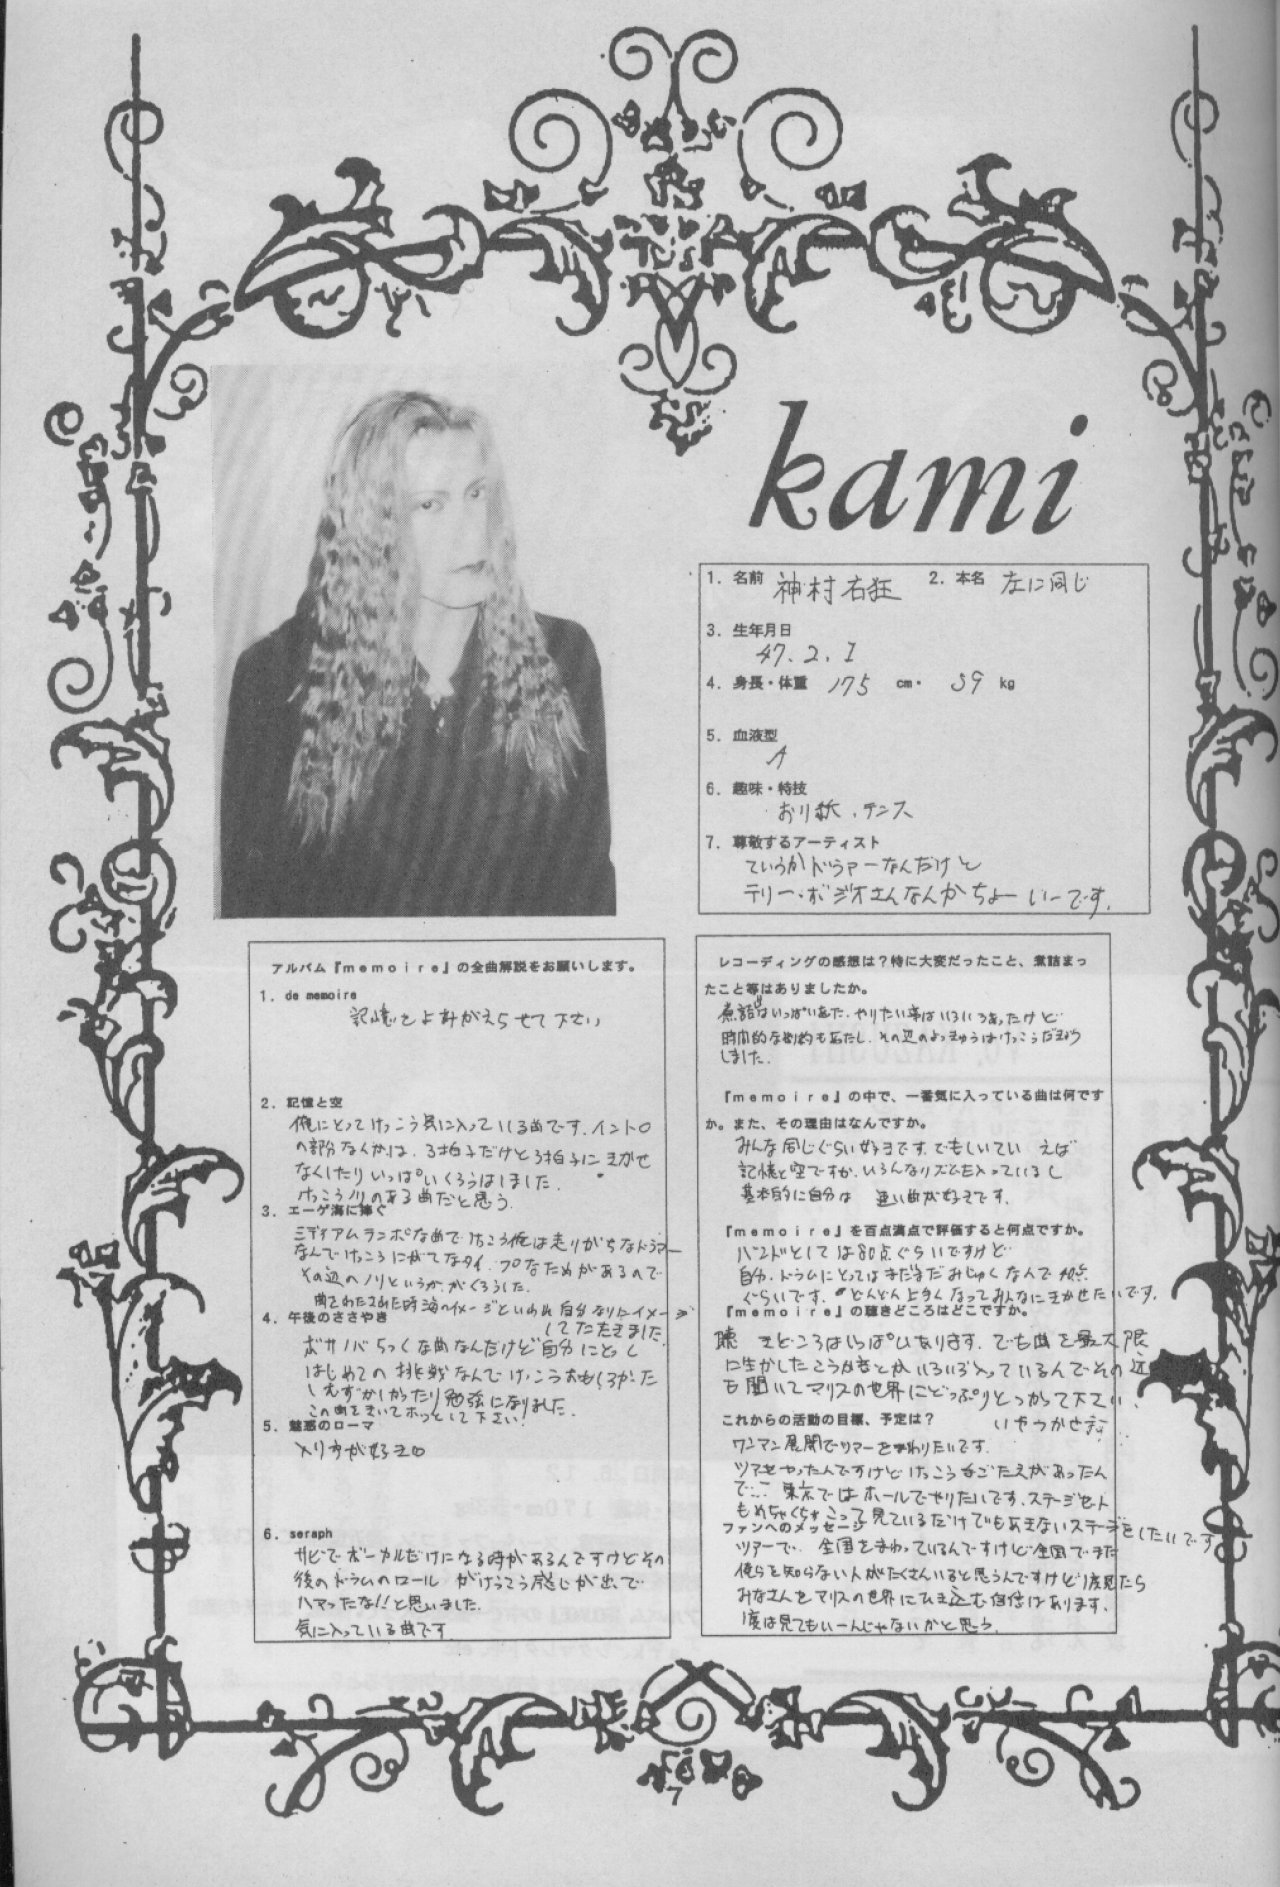 kami
1. 名前 神村右狂 2. 本名 左に同じ
3. 生年月日
47. 2. 1
4. 身長・体重 175 cm・ 59 kg
5. 血液型
A
6. 趣味・特技
おり紙、テニス
7. 尊敬するアーティスト
ていうかドラマーなんだけど
テリー・ボジオさんなんかちょーいーです.
アルバム『memoire』の全曲解説をお願いします。
1. de memoire
記憶をよみがえらせて下さい
2. 記憶と空
俺にとってけっこう気に入っている曲です.イントロ
の部分なんかは、3拍子だけど3拍子にきかせ
なくしたりいっぱいくろうはしました.
けっこうノリのある曲だと思う.
3. エーゲ海に捧ぐ
ミディアムテンポな曲でけっこう俺は走りがちなドラマー
なんでけっこうにがてなタイプなためがあるので
その辺のノリというか、がくろうした.
曲をわたされた時海のイメージといわれ自分なりにイメージ
してたたきました.
4. 午後のささやき
ボサノバちっくな曲なんだけど自分にとっし
はじめての挑戦なんでけっこうおもしろかった
しむずかしかったり勉強になりました.
この曲をきいてホッとして下さい!
5. 魅惑のローマ
入り方が好き
6. seraph
サビでボーカルだけになる時があるんですけどその
後のドラムのロールがけっこう感じが出て
ハマったな!!と思いました.
気に入っている曲です.
レコーディングの感想は?特に大変だったこと、煮詰まっ
たこと等はありましたか。
煮詰はいっぱいあった.やりたい事はいろいろあったけど
時間的な制約もあたし.その辺のよっきゅうはけっこうだきょう
しました.
『memoire』の中で、一番気に入っている曲は何です
か。また、その理由はなんですか。
みんな同じぐらい好きです.でもしいていえば
記憶と空ですか.いろんなリズムも入っているし
基本的に自分は 速い曲が好きです.
『memoire』を百点満点で評価すると何点ですか。
バンドとしては80点ぐらいですけど
自分、ドラムにとってはまだまだみじゅくなんで 点
ぐらいです. どんどん上手くなってみんなにきかせたいです.
『memoire』の聴きどころはどこですか。
聴きどころはいっぱいあります.でも曲を最大限
に生かしたこうか音とかいろいろ入っているんでその辺
も聞いてマリスの世界にどっぷりとつかって下さい.
いやつかせ
これからの活動の目標、予定は?
ワンマン展開でツアーをまわりたいです.
ツアーをやったんですけどけっこう手ごたえがあったん
で… 東京ではホールでやりたいです.ステージセット
もめちゃくちゃこって見ているだけでもあきないステージをしたいです
ファンへのメッセージ
ツアーで、全国をまわっているんですけど全国でまだ
俺らを知らない人がたくさんいると思うんですけど1度見たら
みなさんをマリスの世界にひき込む自信はあります.
1度は見てもいーんじゃないかと思う.
7